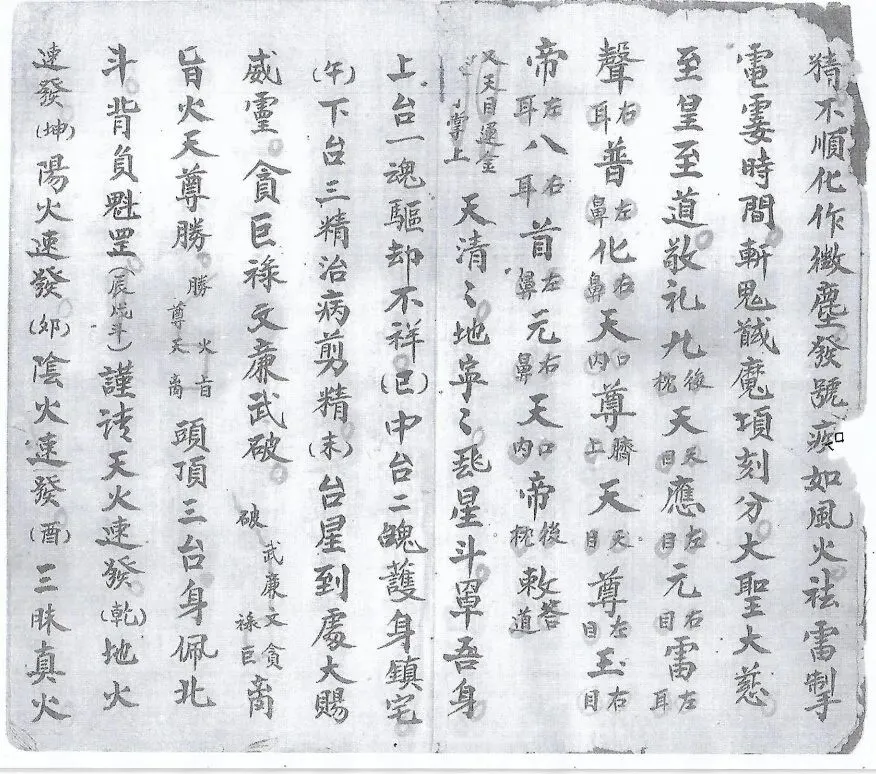 猜不順化作微塵發號疾如風火祛雷掣
電霎時間斬鬼馘魔項刻分大聖大慈
至皇至道敬礼九後枕天天目應左目元右目雷左耳
聲右耳普左鼻化右鼻天口内尊臍上天天目尊左目玉右目
帝左耳八右耳首左鼻元右鼻天口内帝後枕敕答道
又天目運金掌上天清〻地寧〻星斗罩吾身
上台一魂驅却不祥(巳)中台二魄護身鎮宅
(午)下台三精治病剪精(未)台星到處大賜
威靈貪巨祿文廉武破破武廉文祿巨貪离
旨火天尊勝勝火旨尊天离頭頂三台身佩北
斗背負魁罡(辰戌斗)謹請天火速發(乾)地火
速發(坤)陽火速發(卯)陰火速發(酉)三昧真火